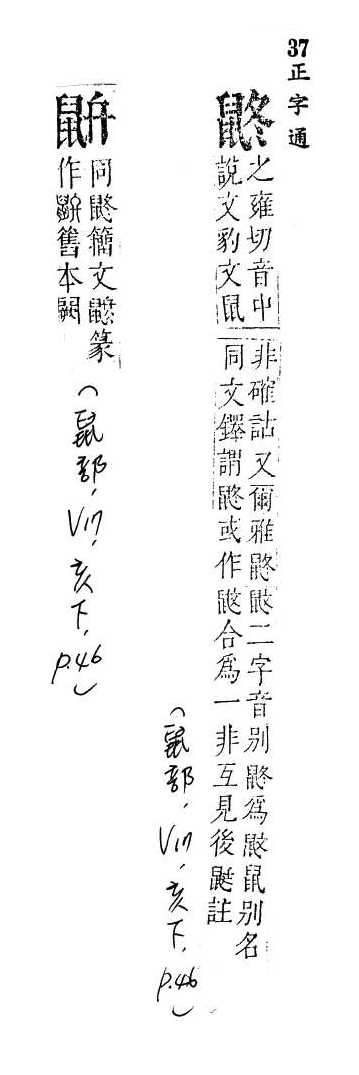 37正字通
鼨
之雍切音中
說文豹文鼠
非確詁又爾雅鼨鼮二字音別鼨爲鼮鼠別名
同文鐸謂鼨或作鼮合爲一非互見後鼮註
(鼠部,亥下,p.46)
同鼨籀文篆
作舊本闕
(鼠部,亥下,p.46)